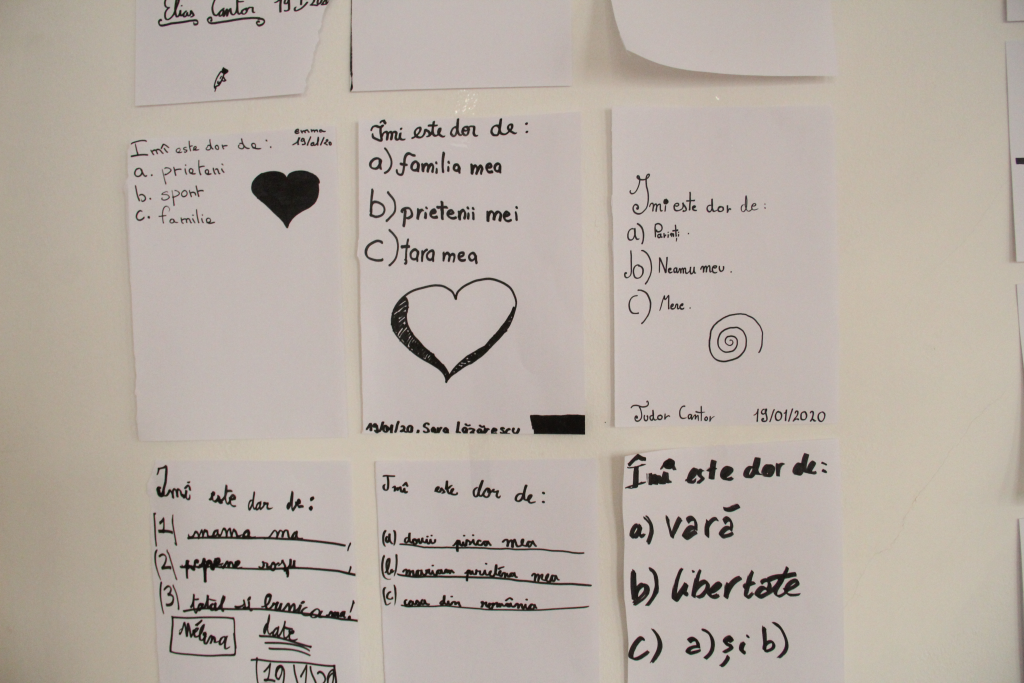 Elias Cantor
Imî este dor de:
emma
19/01/20
a. prieteni
b. sport
c. familie
Îmi este dor de:
a) familia mea
b) prietenii mei
c) țara mea
19/01/20. Sara Lăzărescu
Imi este dor de:
a) Parinți.
b) Neamu meu.
c) Mere.
Tudor Cantor 19/01/2020
Imî este dar de:
(1) mama ma,
(2) pepene roșu
(3) tatal si bunica ma!
Mélina
date
19/1/20
Imî este dor de:
(a) pisica mea
(b) mariam prietena mea
(c) casa din românia
Îmî este dor de:
a) vară
b) libertate
c) a) și b)